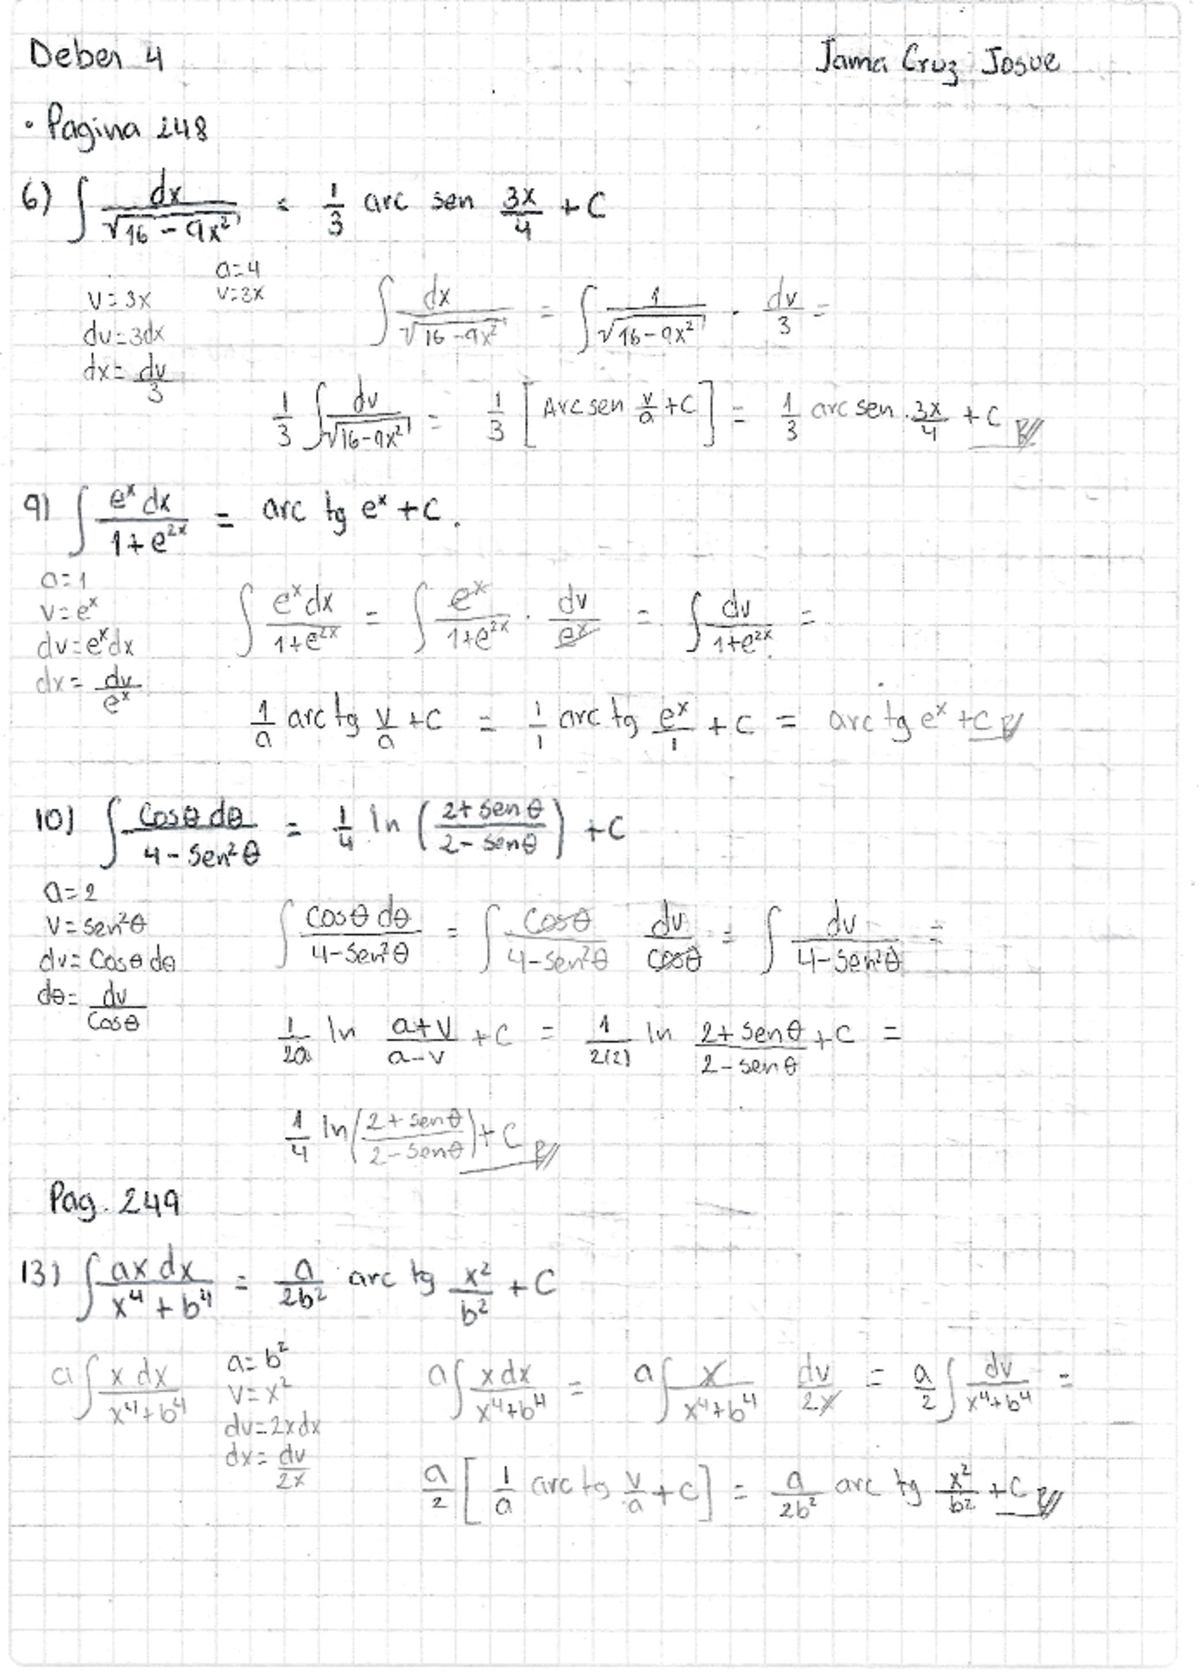 Deber 4 Jama Cruz Josue
• Pagina 248
6) ∫ dx/√(16-9x²) = 1/3 arc sen 3x/4 + C
a=4
v=3x v=3x
dv=3dx
dx= dv/3
∫ dx/√(16-9x²) = ∫ 1/√(16-9x²) · dv/3 =
1/3 ∫ dv/√(16-9x²) = 1/3 [Arcsen v/a + C] = 1/3 arc sen 3x/4 + C R//
9) ∫ eˣ dx/(1+e²ˣ) = arc tg eˣ + C.
a=1
v=eˣ
dv=eˣdx
dx= dv/eˣ
∫ eˣdx/(1+e²ˣ) = ∫ eˣ/(1+e²ˣ) · dv/eˣ = ∫ dv/(1+e²ˣ) =
1/a arc tg v/a + C = 1/1 arc tg eˣ/1 + C = arc tg eˣ + C R//
10) ∫ Cosθ dθ/(4-Sen²θ) = 1/4 ln (2+senθ/2-senθ) + C
a=2
v=sen²θ
dv=Cosθdθ
dθ= dv/Cosθ
∫ Cosθ dθ/(4-Sen²θ) = ∫ Cosθ/(4-Sen²θ) dv/Cosθ = ∫ dv/(4-Sen²θ) =
1/2a ln a+v/a-v + C = 1/2(2) ln 2+senθ/2-senθ + C =
1/4 ln (2+senθ/2-senθ) + C R//
Pag. 249
13) ∫ ax dx/(x⁴+b⁴) = a/2b² arc tg x²/b² + C
a∫ x dx/(x⁴+b⁴)
a=b²
v=x²
dv=2xdx
dx= dv/2x
a∫ xdx/(x⁴+b⁴) = a∫ x/(x⁴+b⁴) dv/2x = a/2 ∫ dv/(x⁴+b⁴) =
a/2 [1/a arc tg v/a + C] = a/2b² arc tg x²/b² + C R//